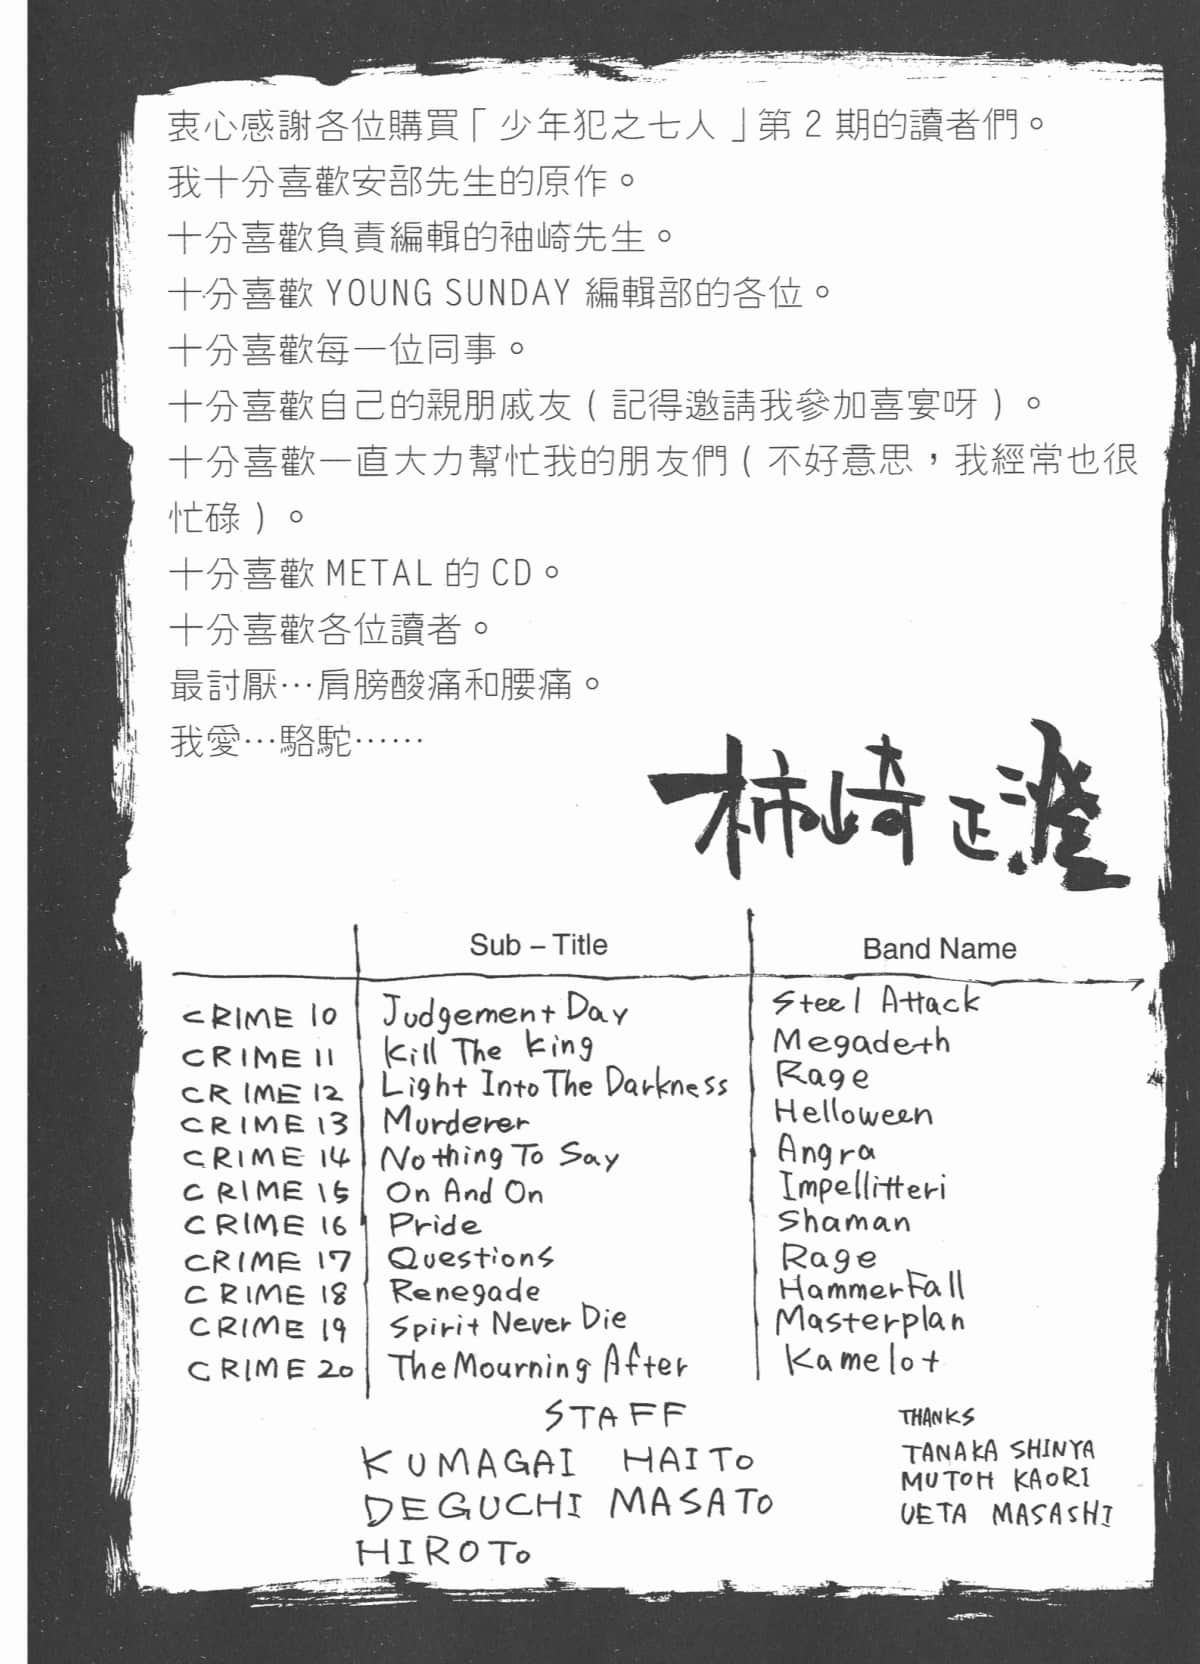 衷心感謝各位購買「少年犯之七人」第2期的讀者們。
我十分喜歡安部先生的原作。
十分喜歡負責編輯的袖崎先生。
十分喜歡 YOUNG SUNDAY 編輯部的各位。
十分喜歡每一位同事。
十分喜歡自己的親朋戚友(記得邀請我參加喜宴呀)。
十分喜歡一直大力幫忙我的朋友們(不好意思,我經常也很
忙碌)。
十分喜歡 METAL 的 CD。
十分喜歡各位讀者。
最討厭…肩膀酸痛和腰痛。
我愛…駱駝……
柿崎正澄
Sub – Title Band Name
CRIME 10 Judgement Day Steel Attack
CRIME 11 Kill The King Megadeth
CRIME 12 Light Into The Darkness Rage
CRIME 13 Murderer Helloween
CRIME 14 Nothing To Say Angra
CRIME 15 On And On Impellitteri
CRIME 16 Pride Shaman
CRIME 17 Questions Rage
CRIME 18 Renegade HammerFall
CRIME 19 Spirit Never Die Masterplan
CRIME 20 The Mourning After Kamelot
STAFF
KUMAGAI HAITo
DEGUCHI MASATo
HIROTo
THANKS
TANAKA SHINYA
MUTOH KAORI
UETA MASASHI